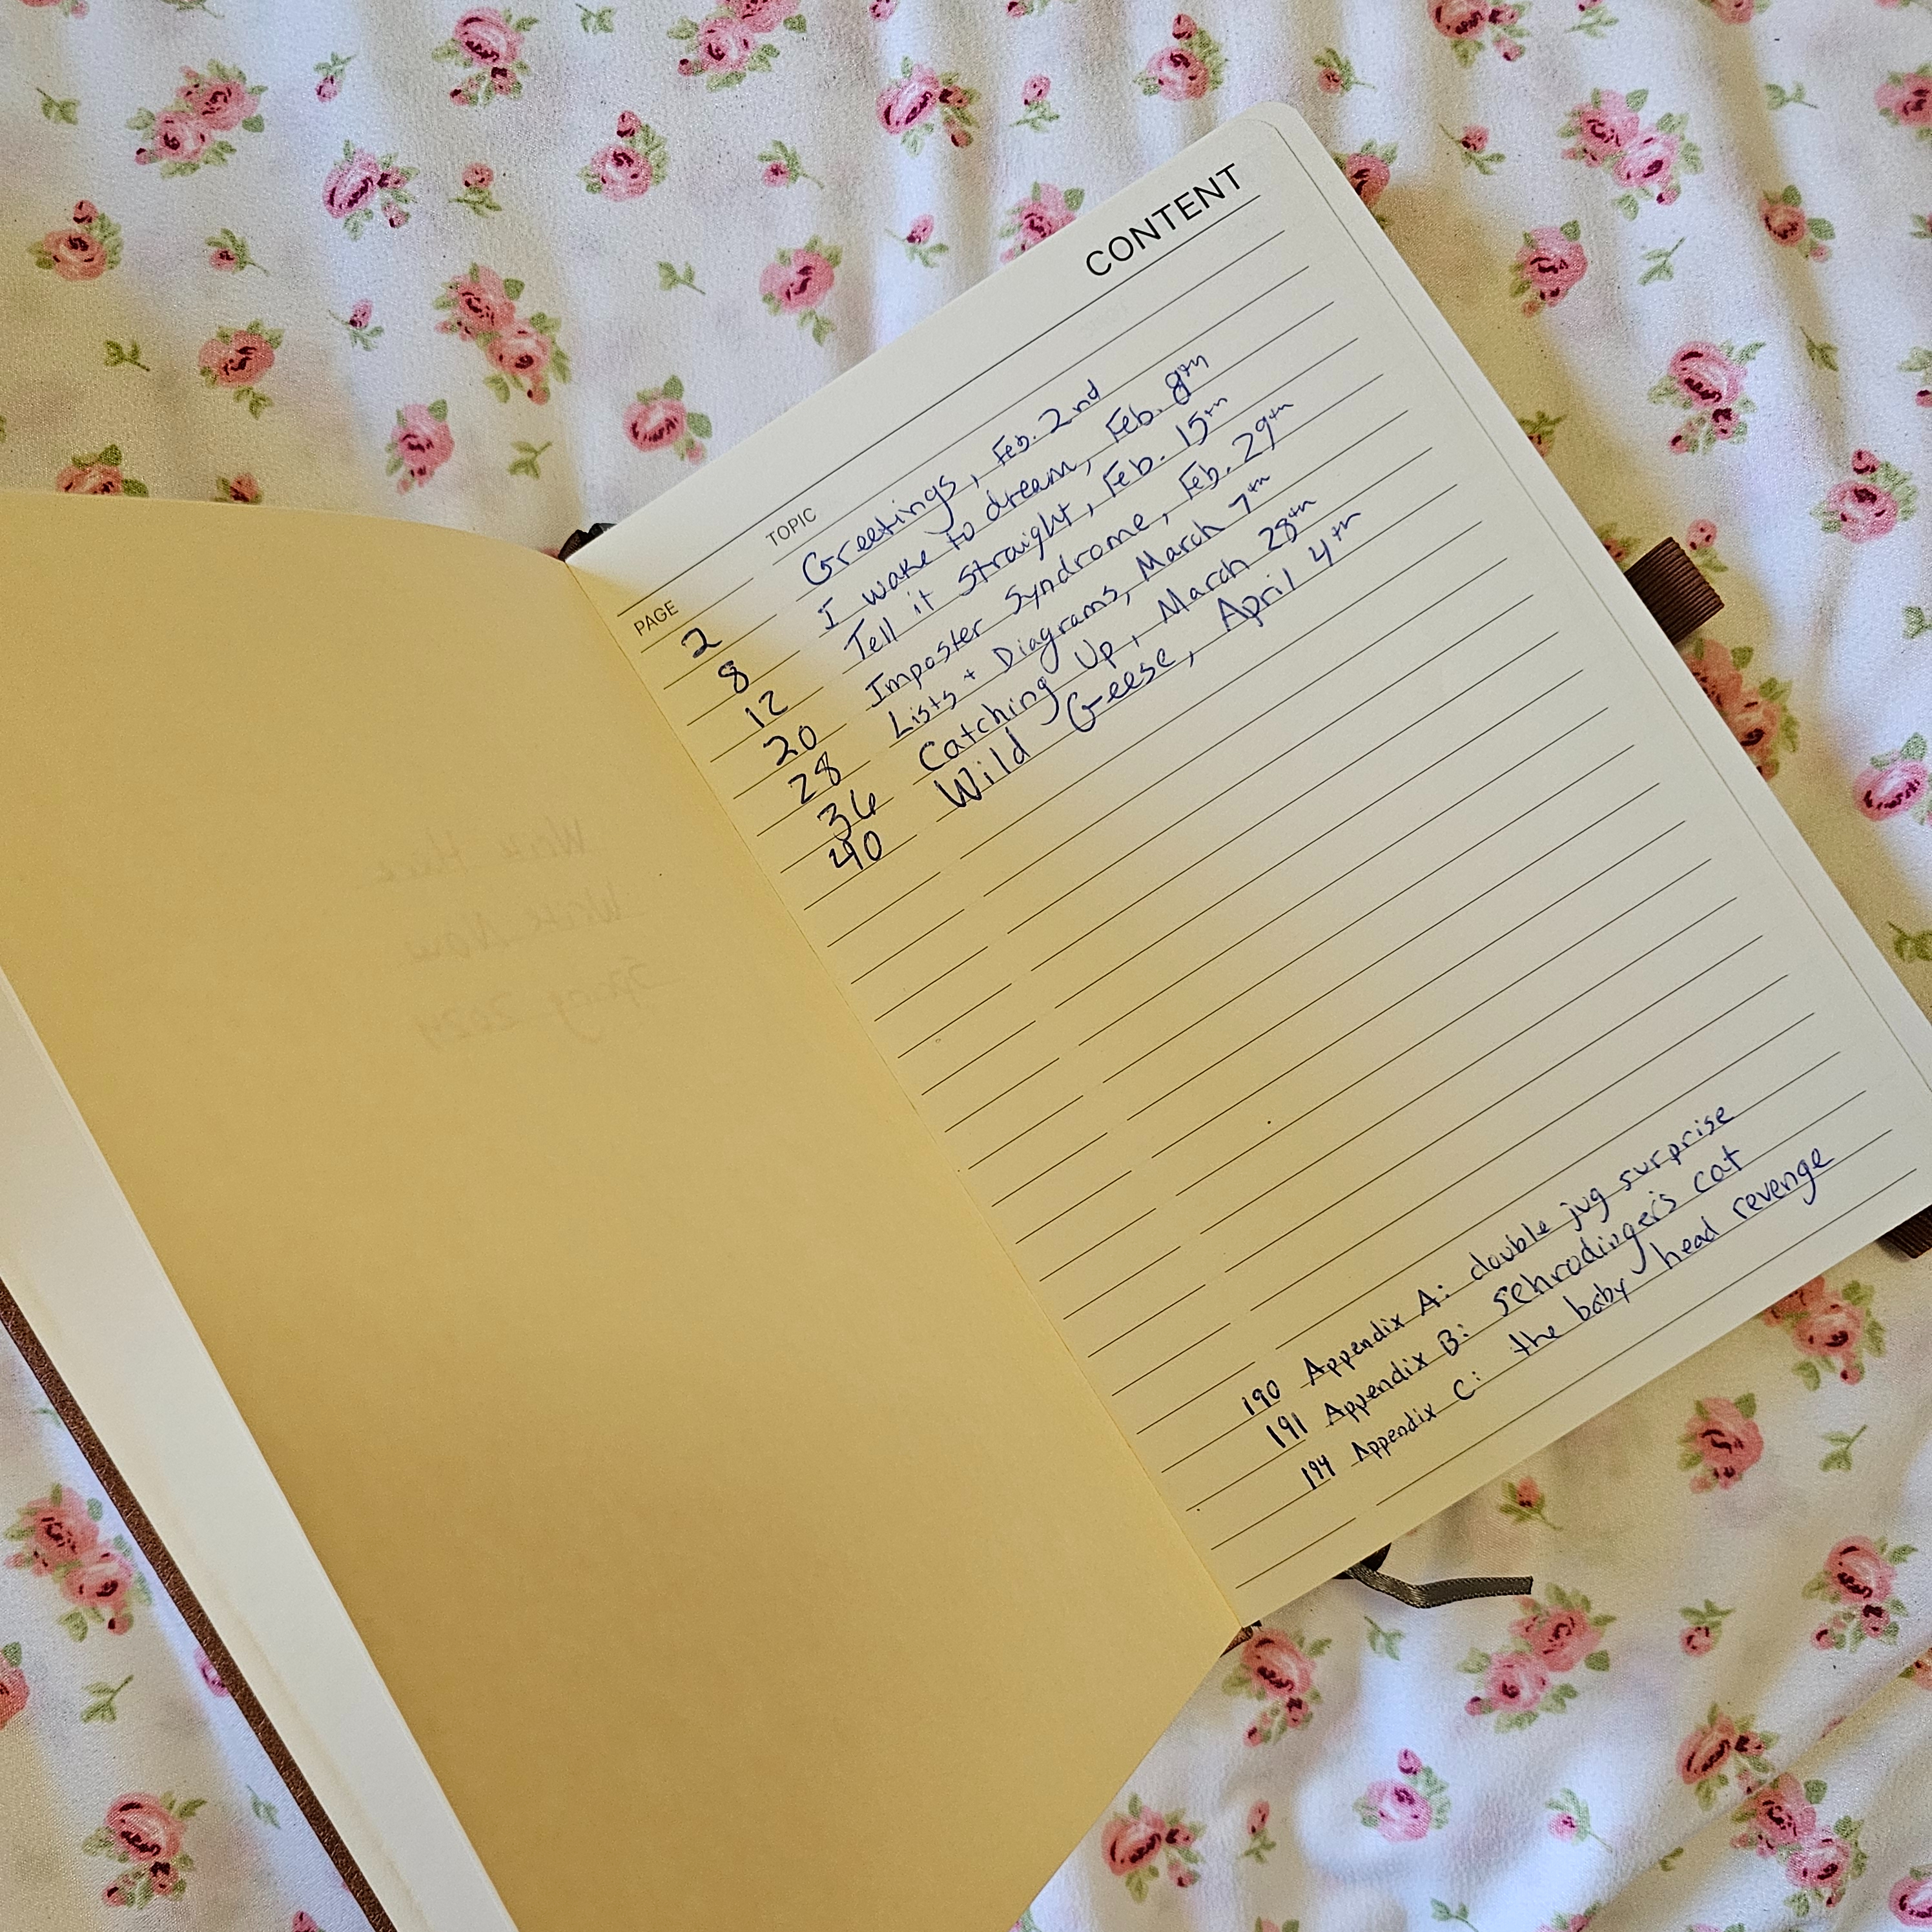 Write Here
Write Now
Spring 2024
CONTENT
PAGE TOPIC
2 Greetings, Feb. 2nd
8 I wake to dream, Feb. 8th
12 Tell it Straight, Feb. 15th
20 Imposter Syndrome, Feb. 29th
28 Lists + Diagrams, March 7th
36 Catching Up, March 28th
40 Wild Geese, April 4th
190 Appendix A: double jug surprise
191 Appendix B: schrodinger's cat
194 Appendix C: the baby head revenge